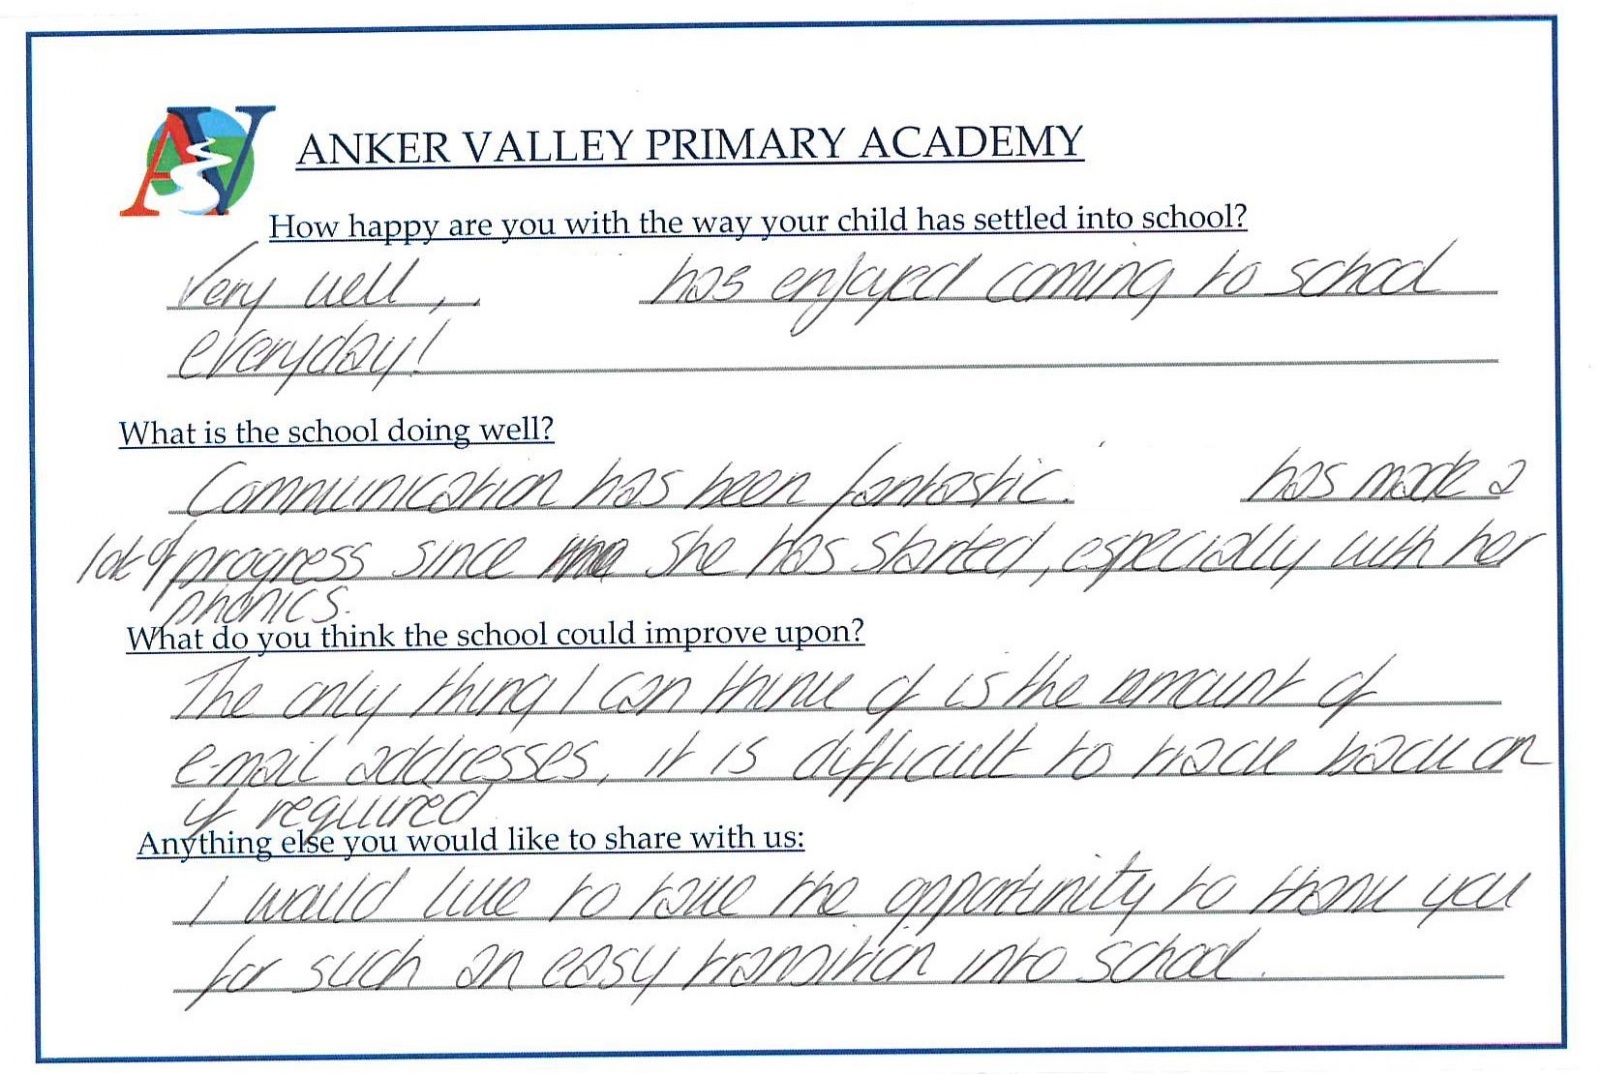 AV
ANKER VALLEY PRIMARY ACADEMY
How happy are you with the way your child has settled into school?
Very well, , has enjoyed coming to school
everyday!
What is the school doing well?
Communication has been fantastic. has made a
lot of progress since she has started, especially with her
phonics.
What do you think the school could improve upon?
The only thing I can think of is the amount of
e-mail addresses, it is difficult to track back on
if required
Anything else you would like to share with us:
I would like to take the opportunity to thank you
for such an easy transition into school.